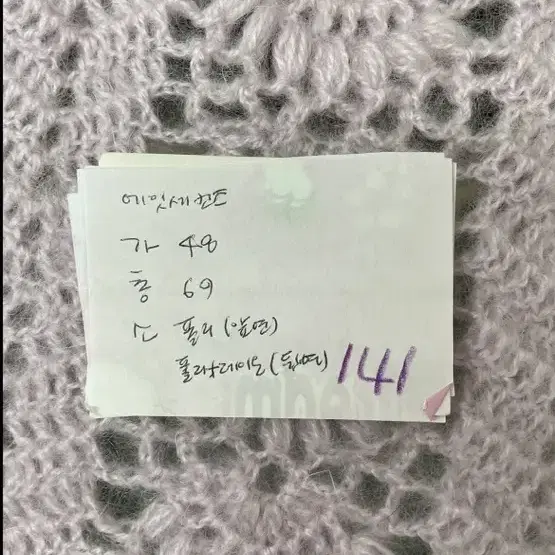 에잇세컨즈
가 48
총 69
소 폴리 (앞면)
폴리+레이온 (뒷면)
141